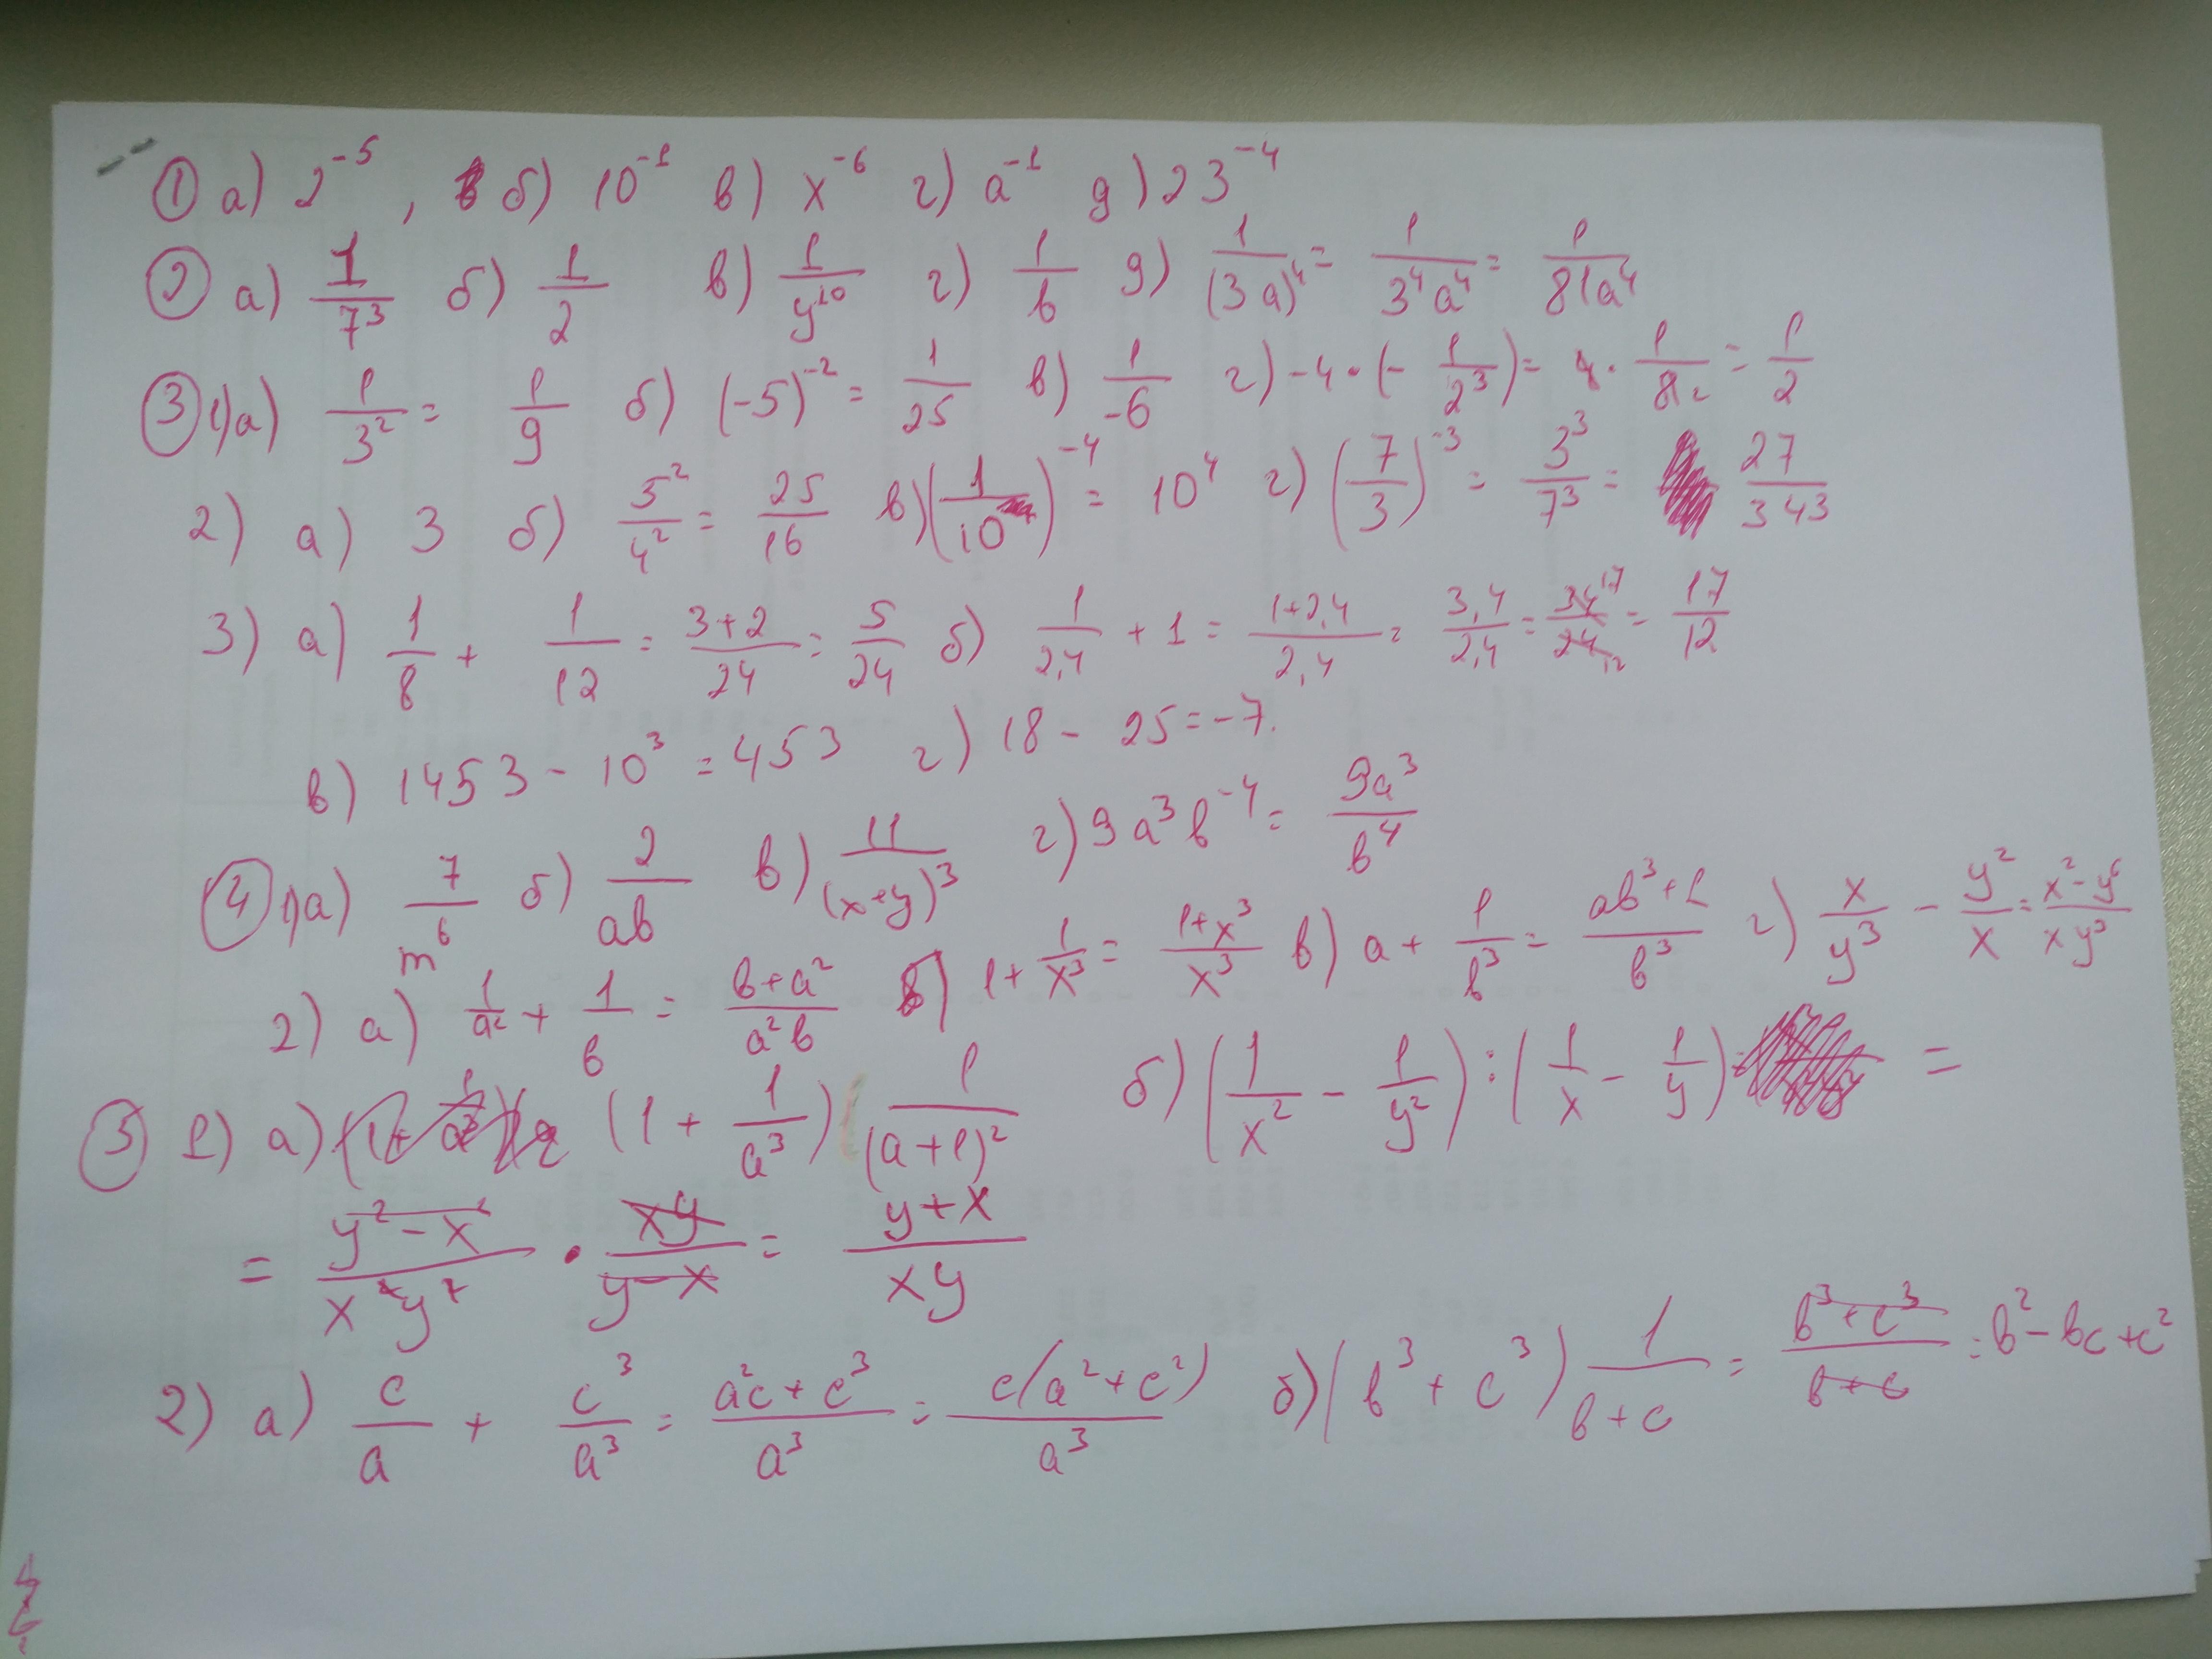 ① а) 2⁻⁵, б) 10⁻¹ в) x⁻⁶ г) a⁻¹ д) 23⁻⁴
② а) 1/7³ б) 1/2 в) 1/y¹⁰ г) 1/b д) 1/(3a)⁴ = 1/3⁴a⁴ = 1/81a⁴
③ 1) а) 1/3² = 1/9 б) (-5)⁻² = 1/25 в) 1/-6 г) -4 · (- 1/2³) = 4 · 1/8₂ = 1/2
2) а) 3 б) 5²/4² = 25/16 в) (1/10)⁻⁴ = 10⁴ г) (7/3)⁻³ = 3³/7³ = 27/343
3) а) 1/8 + 1/12 = 3+2/24 = 5/24 б) 1/2,4 + 1 = 1+2,4/2,4 = 3,4/2,4 = 34¹⁷/24₁₂ = 17/12
в) 1453 - 10³ = 453 г) 18 - 25 = -7.
④ 1) а) 7/m⁶ б) 2/ab в) 11/(x+y)³ г) 9a³b⁻⁴ = 9a³/b⁴
2) а) 1/a² + 1/b = b+a²/a²b б) 1 + 1/x³ = 1+x³/x³ в) a + 1/b³ = ab³+1/b³ г) x/y³ - y²/x = x²-y⁵/xy³
⑤ 1) а) (1 + 1/a³) 1/(a+1)² б) (1/x² - 1/y²) : (1/x - 1/y) =
= y²-x²/x²y² · xy/y-x = y+x/xy
2) а) c/a + c³/a³ = a²c+c³/a³ = c(a²+c²)/a³ б) (b³ + c³) 1/b+c = b³+c³/b+c = b²-bc+c²